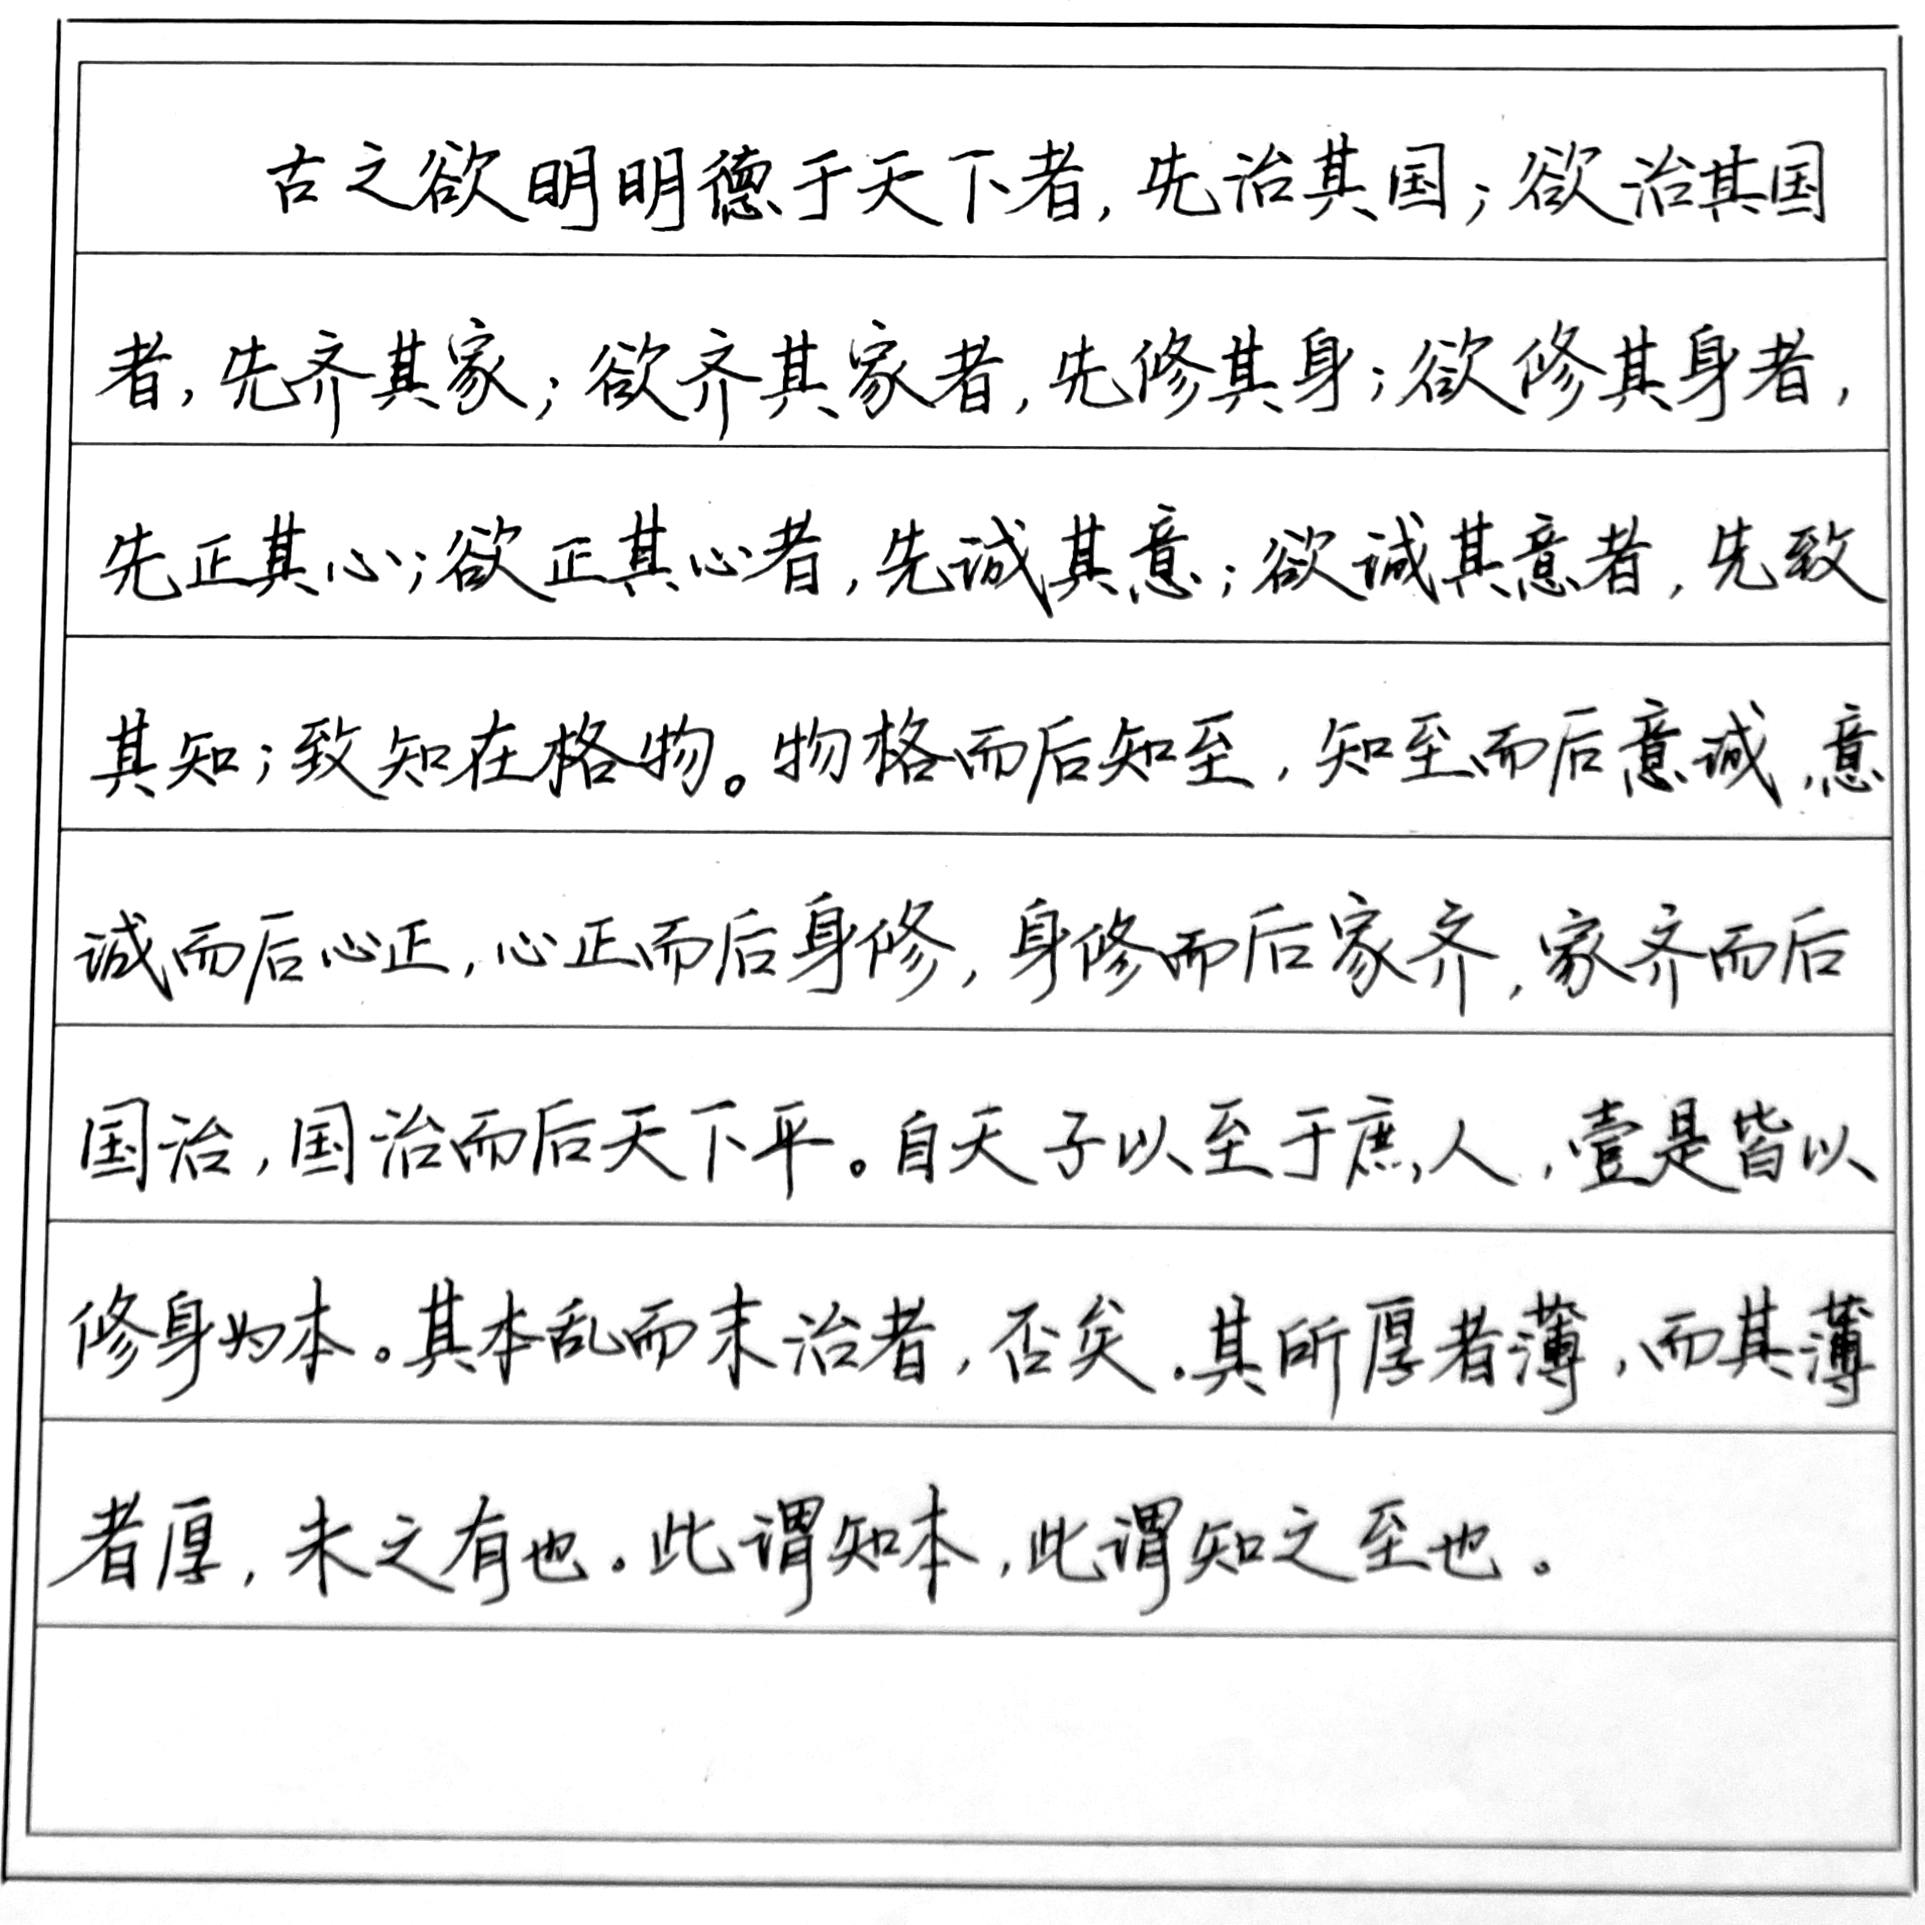 古之欲明明德于天下者，先治其国；欲治其国
者，先齐其家；欲齐其家者，先修其身；欲修其身者，
先正其心；欲正其心者，先诚其意；欲诚其意者，先致
其知；致知在格物。物格而后知至，知至而后意诚，意
诚而后心正，心正而后身修，身修而后家齐，家齐而后
国治，国治而后天下平。自天子以至于庶人，壹是皆以
修身为本。其本乱而末治者，否矣。其所厚者薄，而其薄
者厚，未之有也。此谓知本，此谓知之至也。